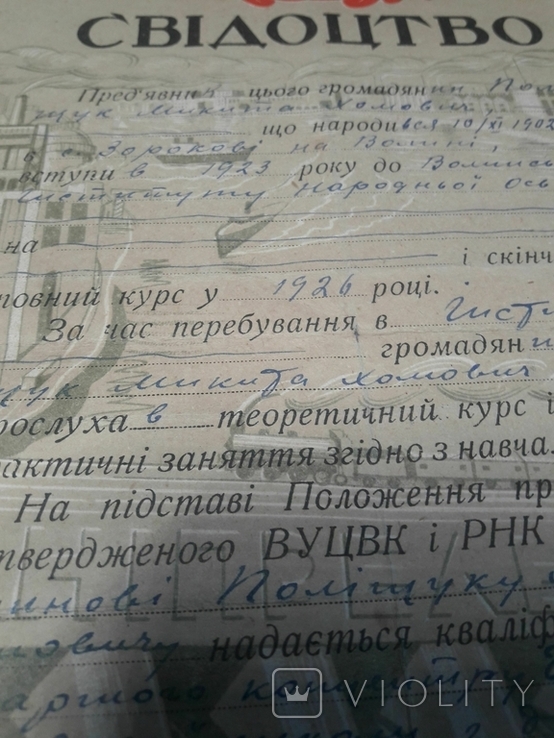 СВІДОЦТВО
Пред'явник цього громадянин Полі
щук Микита Хомович
що народився 10/XI 1902
в с. Зорокові на Волині,
вступив в 1923 року до Волинсь
Інституту Народньої Осв
на
і скінч
повний курс у 1926 році.
За час перебування в Інсти
громадянин
щук Микита Хомович
рослухав теоретичний курс і
рактичні заняття згідно з навчал
На підставі Положення пр
твердженого ВУЦВК і РНК
янинові Поліщуку
мовичу надається кваліф
VIOLITY